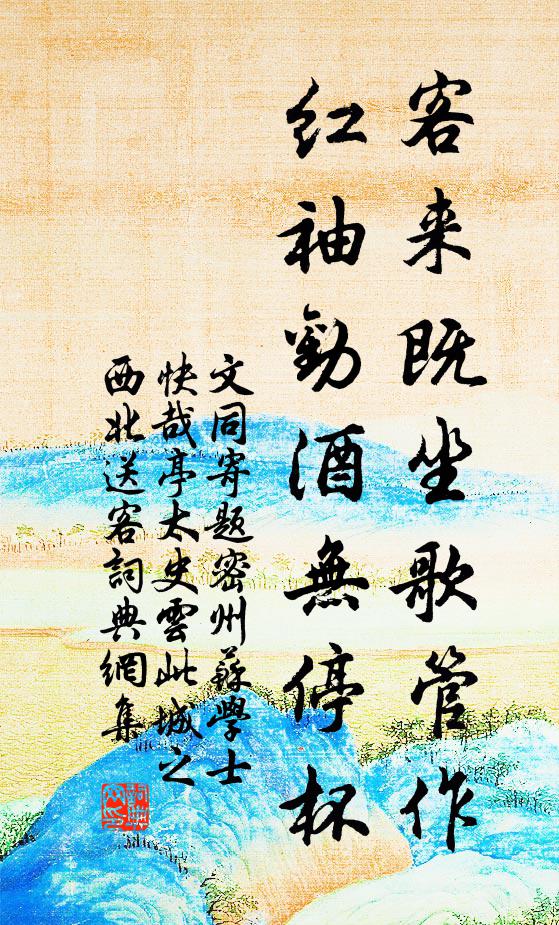 客来既坐歌管作
红袖勸酒無停杯
文同寄题密州蘇學士
快哉亭太史雲此城之
西北送客詞典網集